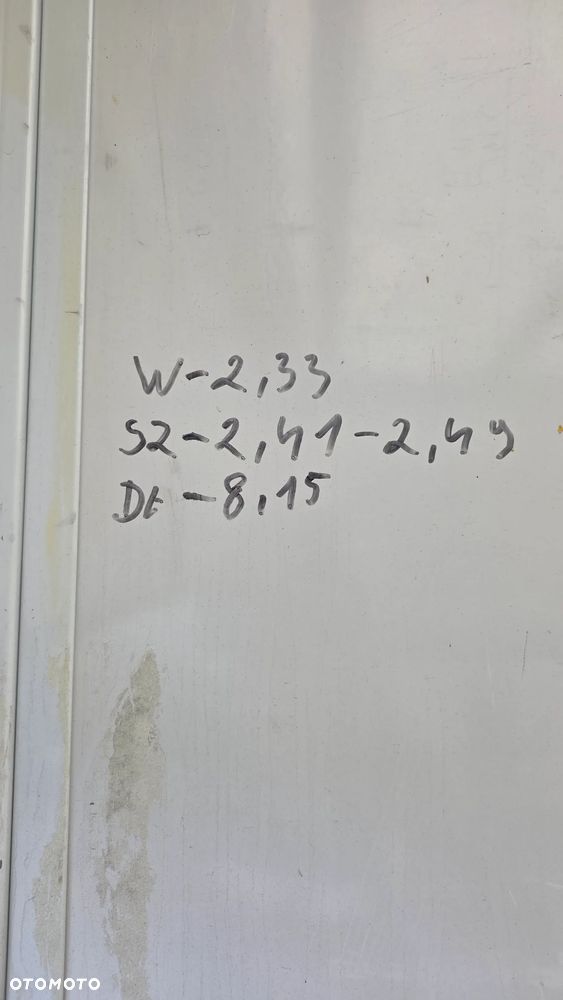 W-2,33
SZ-2,41-2,49
Dł-8,15
OTOMOTO